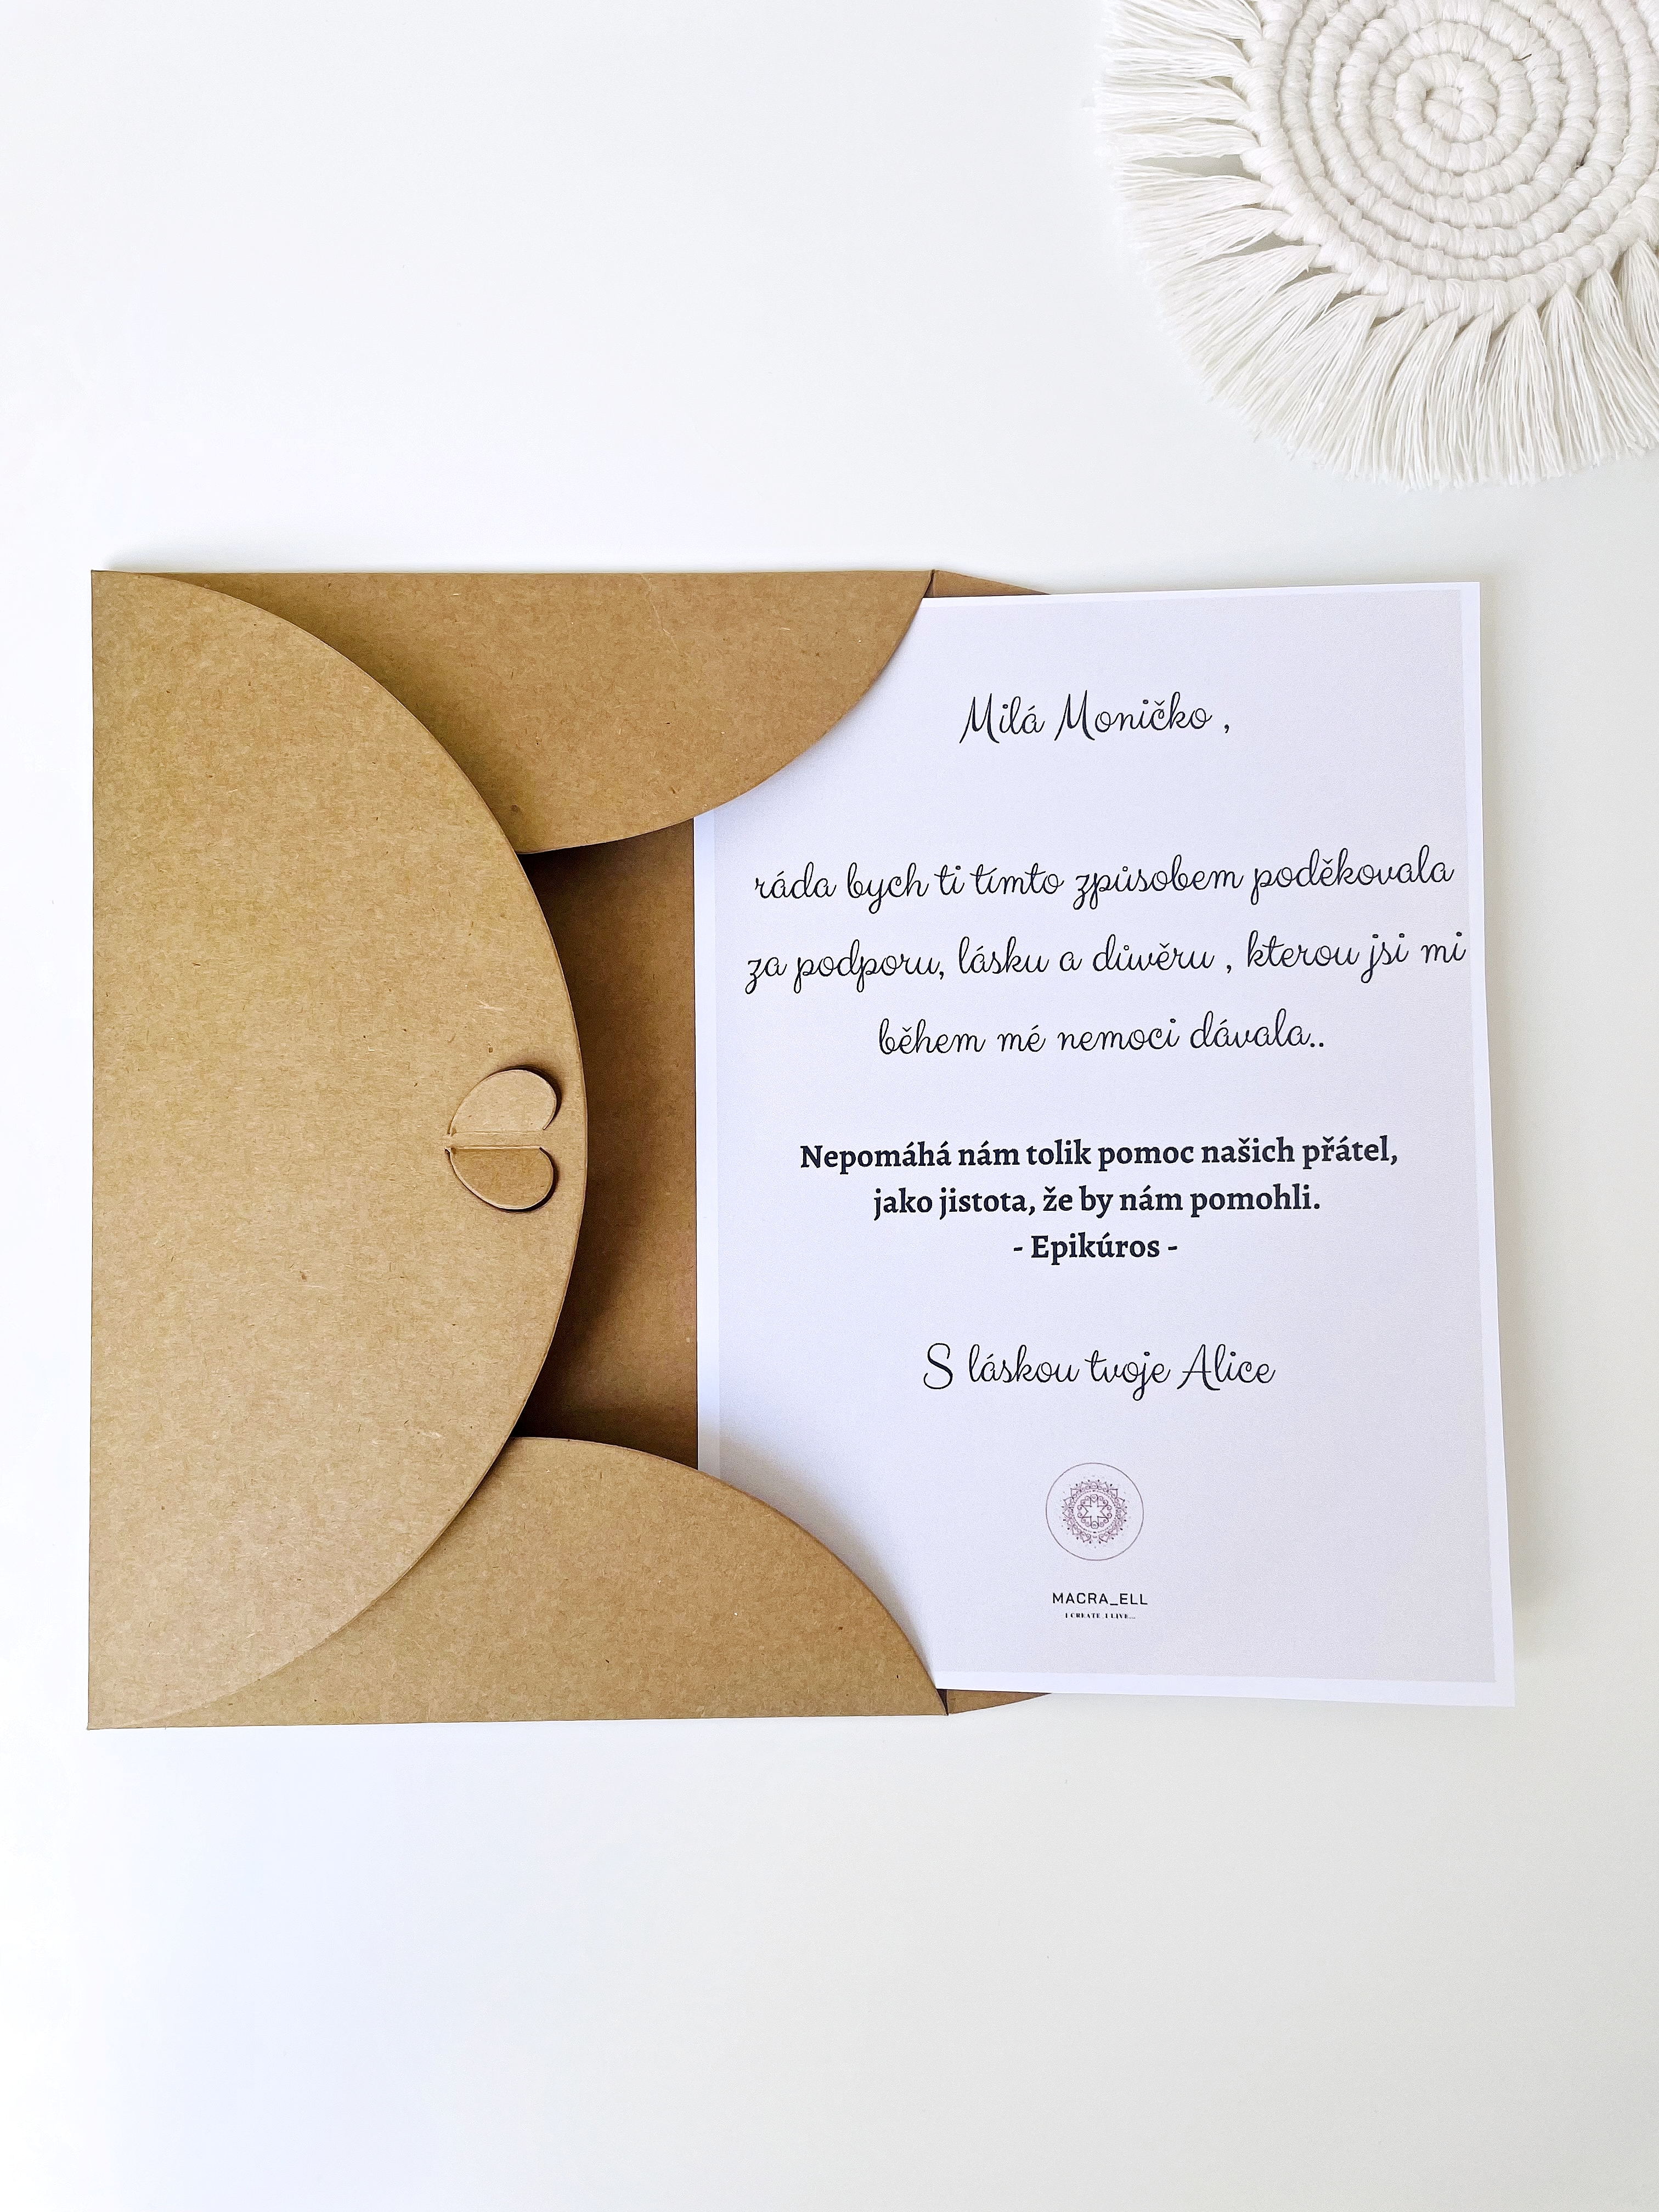 Milá Moničko ,
ráda bych ti tímto způsobem poděkovala
za podporu, lásku a důvěru , kterou jsi mi
během mé nemoci dávala..
Nepomáhá nám tolik pomoc našich přátel,
jako jistota, že by nám pomohli.
- Epikúros -
S láskou tvoje Alice
MACRA_ELL
I CREATE I LIVE...